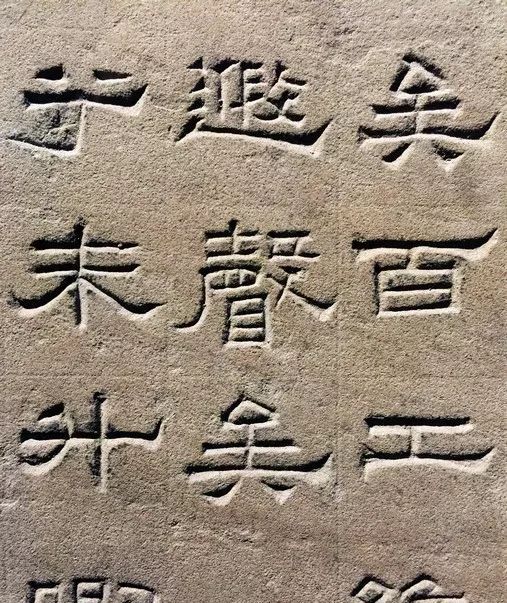 矣百工
遐聲矣
于未升